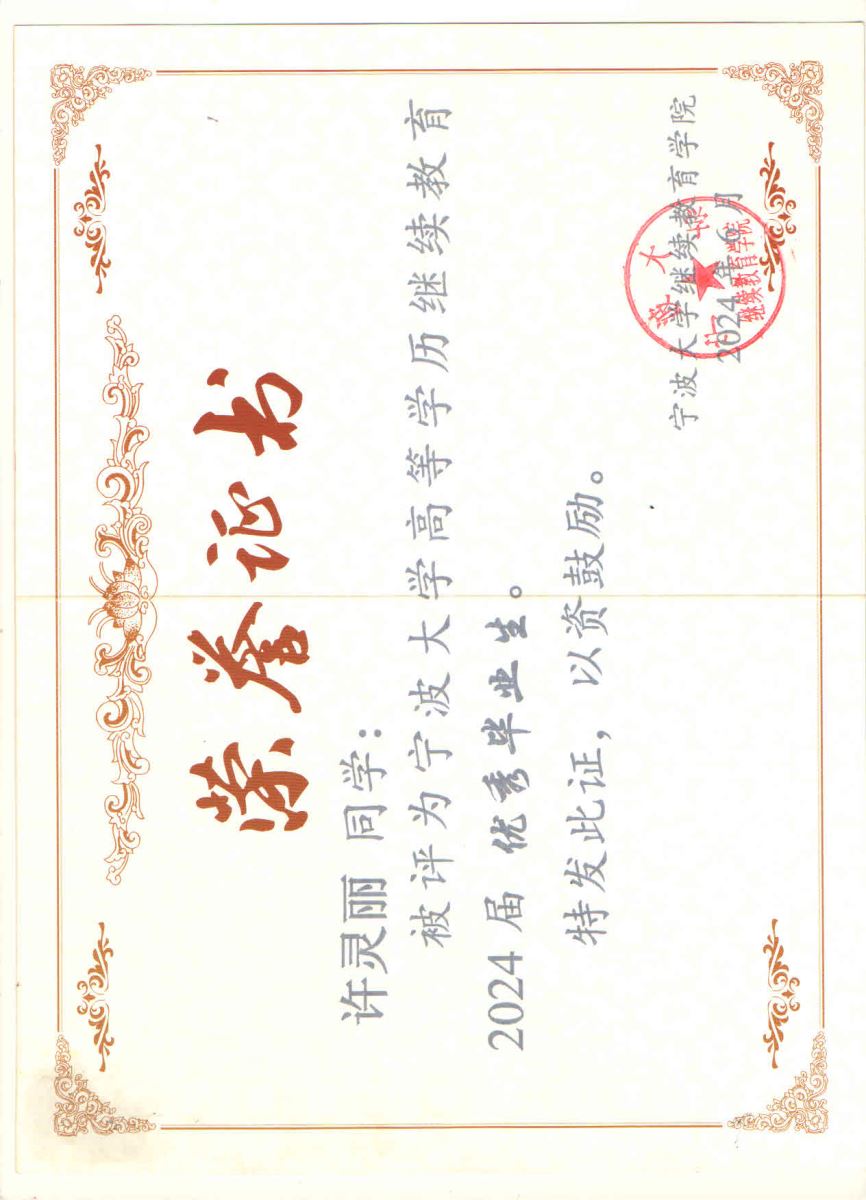 荣誉证书
许灵丽 同学：
被评为宁波大学高等学历继续教育
2024 届 优秀毕业生。
特发此证，以资鼓励。
宁波大学继续教育学院
2024 年 6 月
宁波大学
继续教育学院